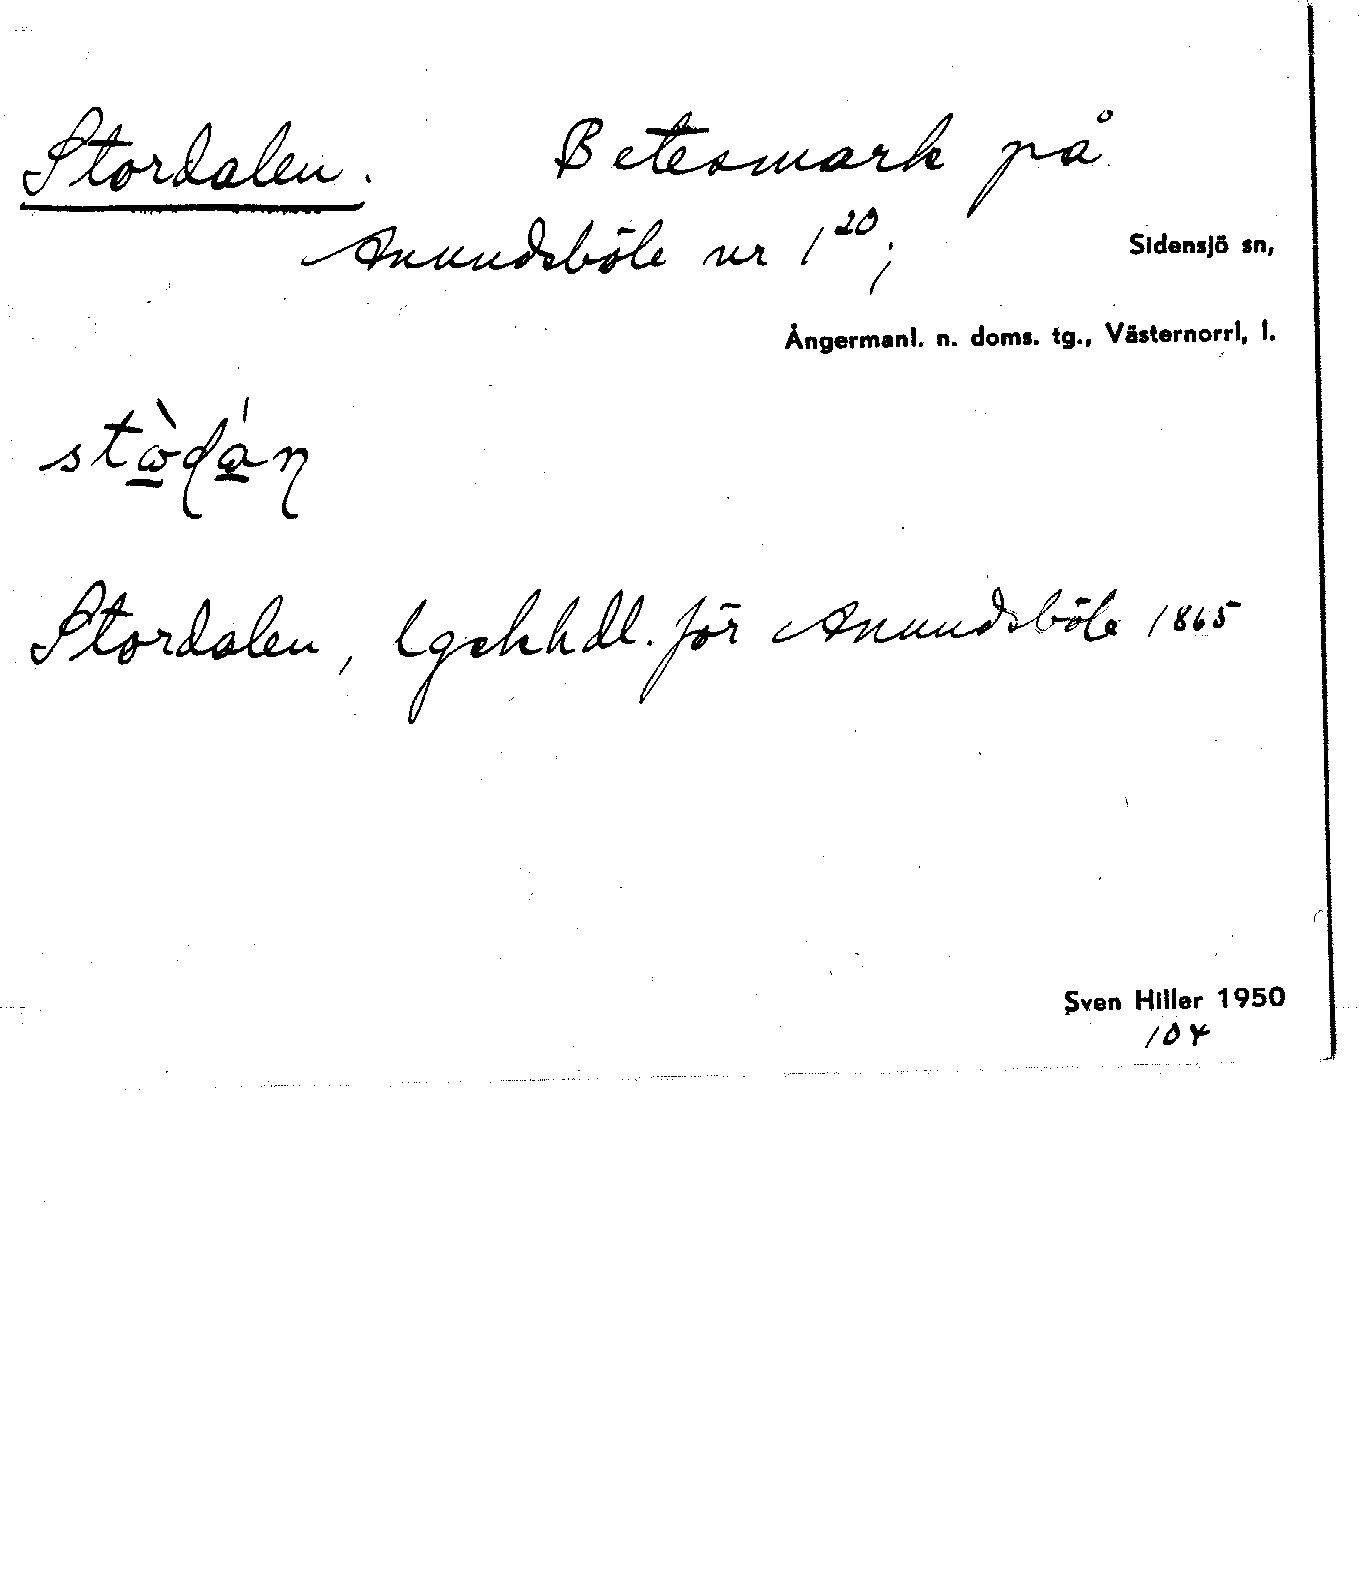 Stordalen. Betesmark på
Anundsböle nr 1²⁰;
Sidensjö sn,
Ångermanl. n. doms. tg., Västernorrl. l.
Stordalen, lgskhdl. för Anundsböle 1865
Sven Hiller 1950
104